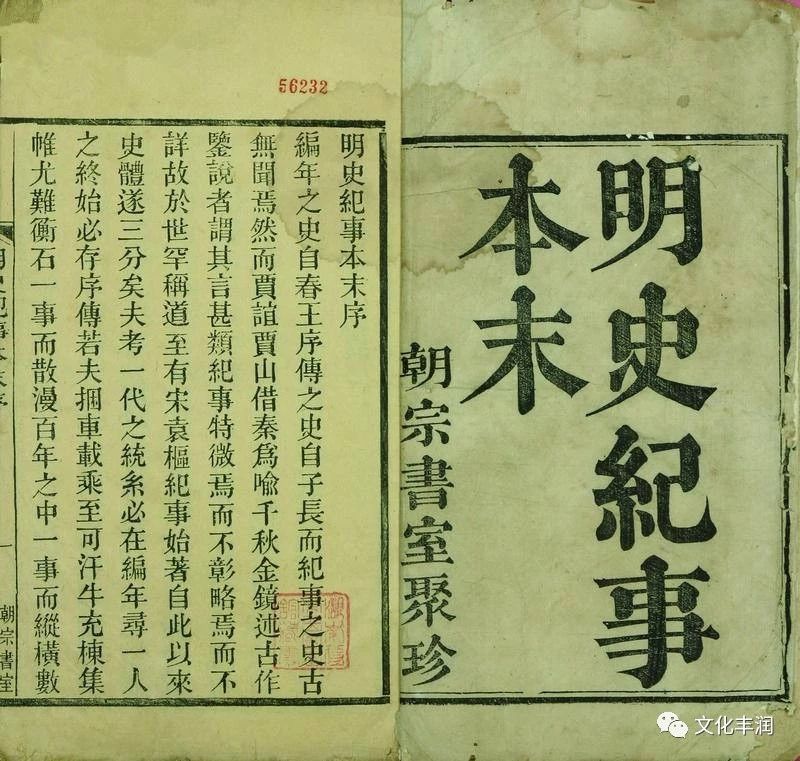 明史紀事
本末
朝宗書室聚珍
56232
明史紀事本末序
編年之史自春王序傳之史自子長而紀事之史古
無聞焉然而賈誼賈山借秦爲喻千秋金鏡述古作
鑒說者謂其言甚類紀事特微焉而不彰略焉而不
詳故於世罕稱道至有宋袁樞紀事始著自此以來
史體遂三分矣夫考一代之統系必在編年尋一人
之終始必存序傳若夫捆車載乘至可汗牛充棟集
帷尤難衡石一事而散漫百年之中一事而縱橫數
朝宗書室
文化丰润